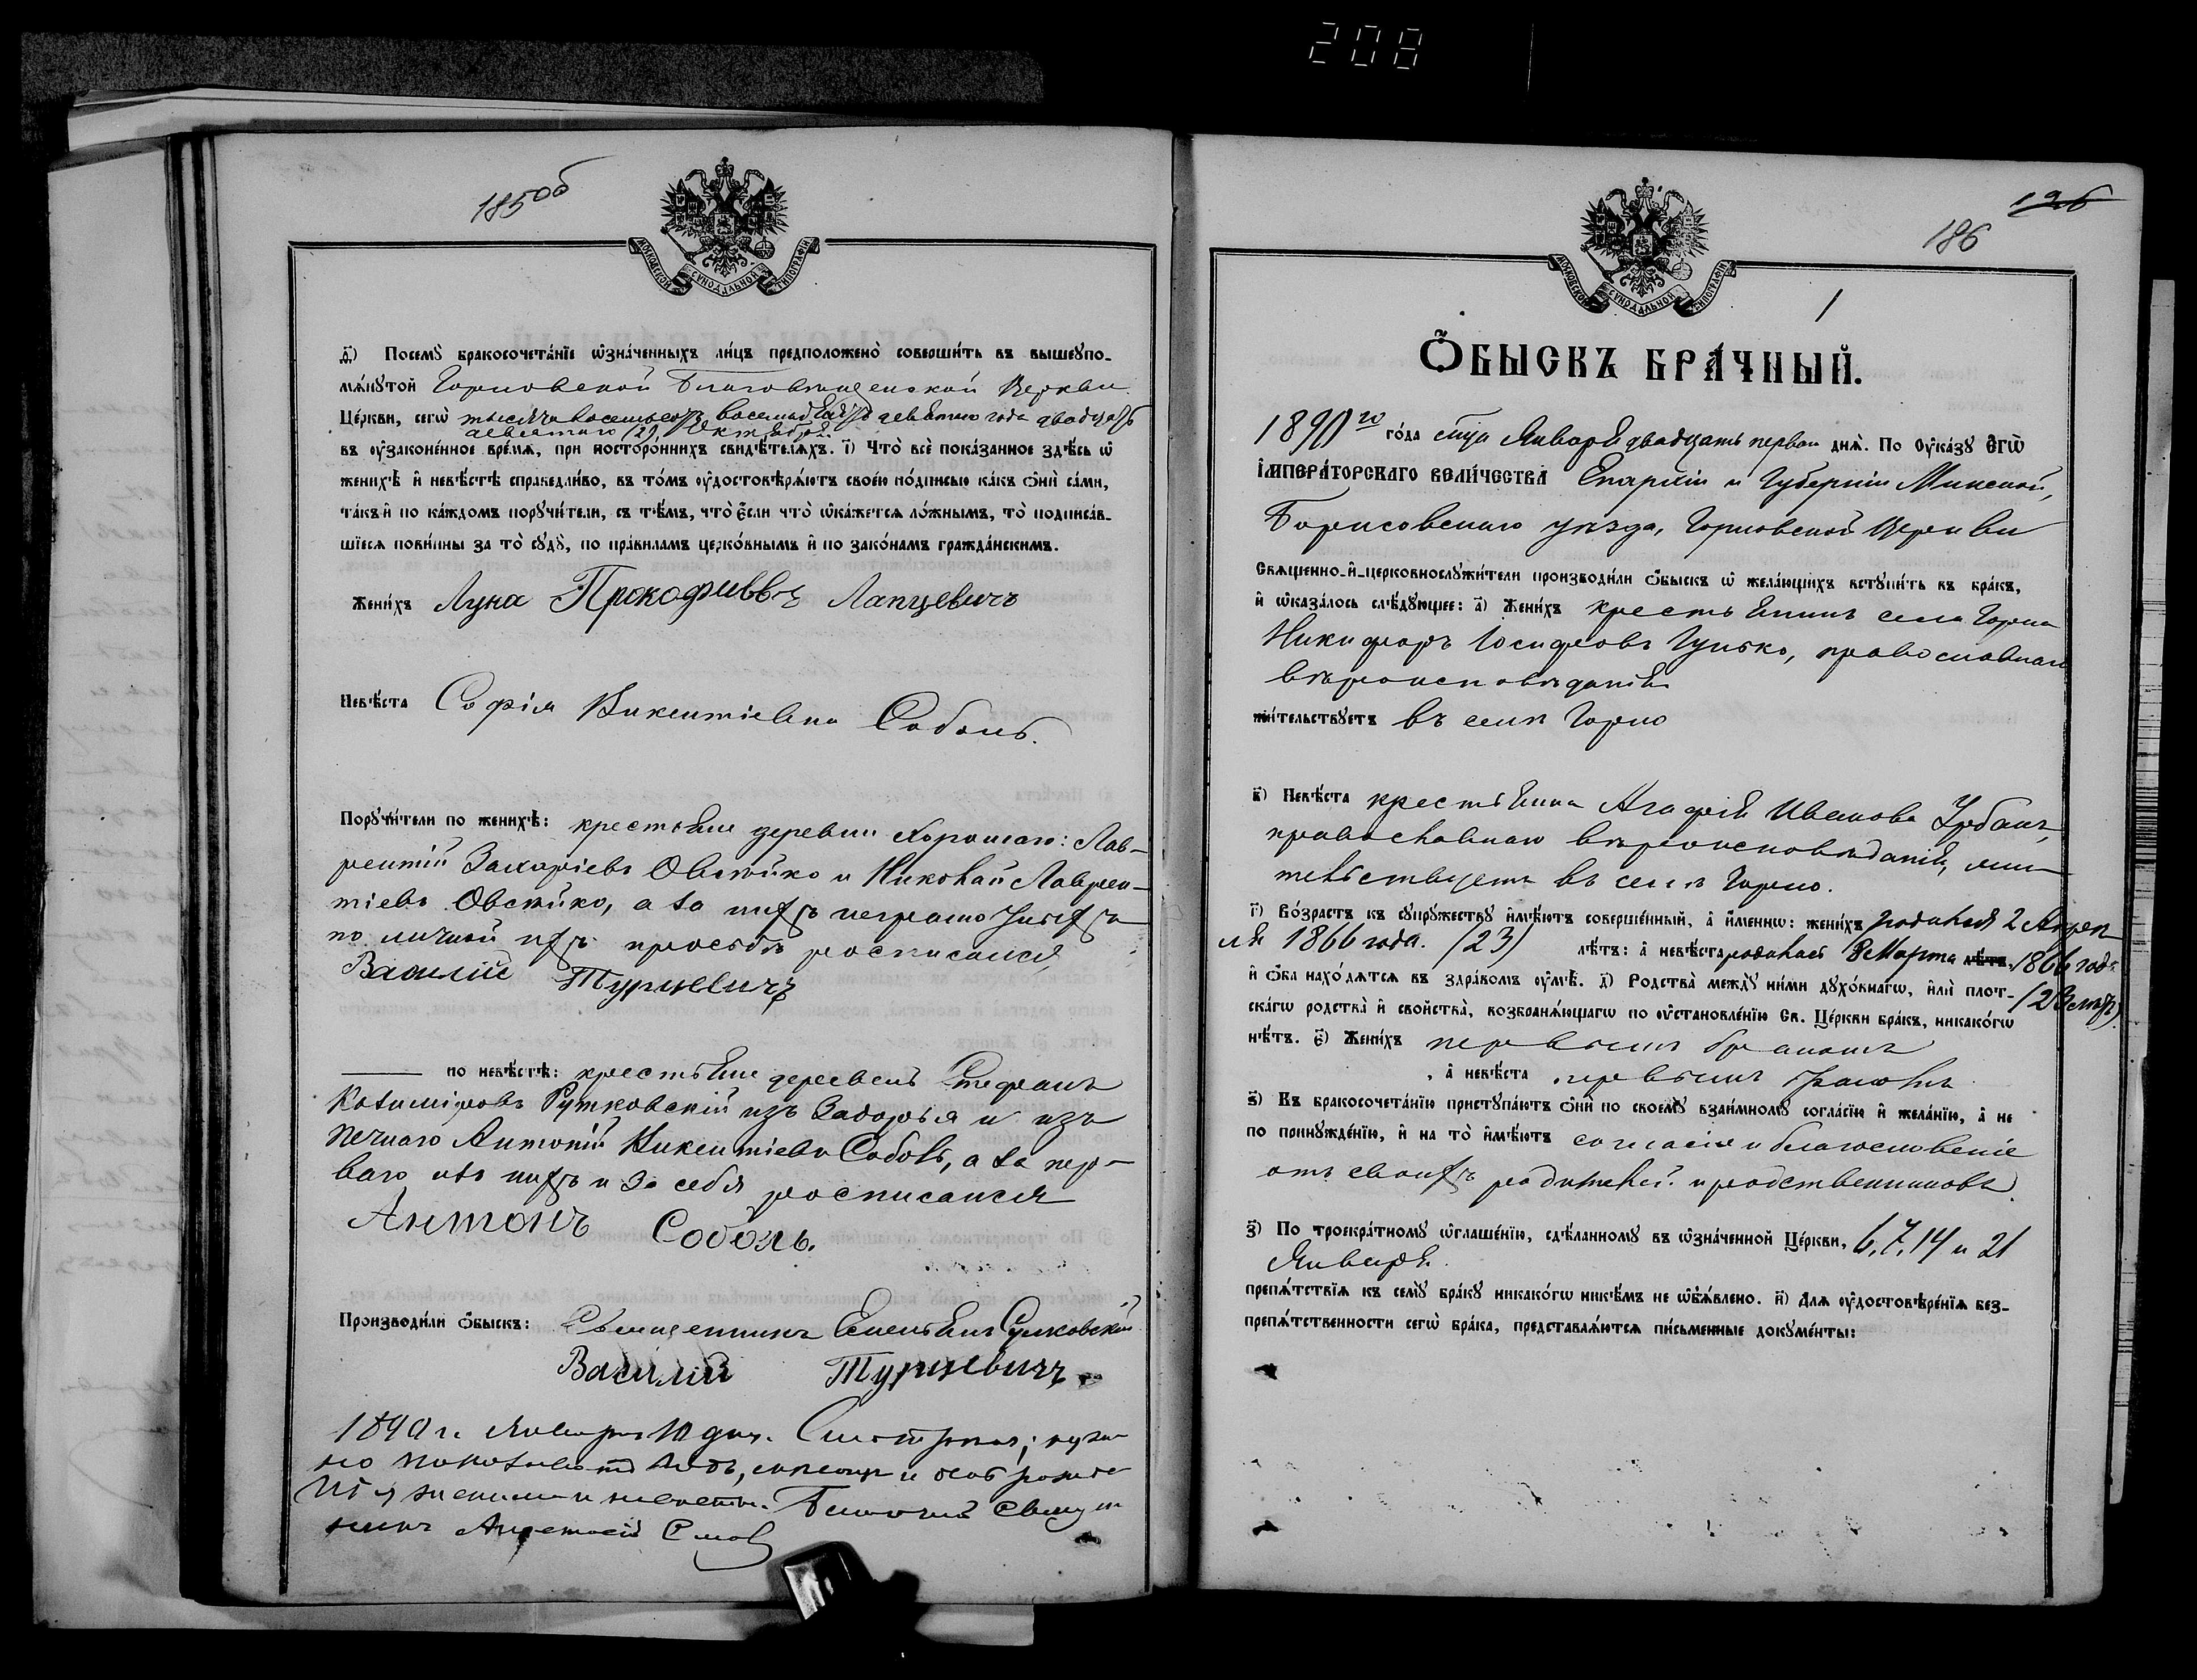 208
185об
МОСКОВСКОЙ СѴНОДАЛЬНОЙ ТИПОГРАФІИ
ѳ҃) Посемꙋ̀ бракосочета́нїе ѡ҆зна́ченныхъ ли́цъ предположено̀ соверши́ть въ вышеꙋпо-
мѧ́нꙋтой Горновской Благовѣщенской Церкви
Це́ркви, сегѡ̀ тысяча восемьсотъ восемьдесятъ девятаго года двадцать
девятаго (29) Октября
въ ᲂу҆зако́ненное вре́мѧ, при посторо́ннихъ свидѣ́телѧхъ. і҃) Что̀ всѐ пока́занное здѣ́сь ѡ҆
женихѣ̀ и҆ невѣ́стѣ справедли́во, въ то́мъ ᲂу҆достовѣрѧ́ютъ свое́ю по́дписью ка́къ ѻ҆нѝ са́ми,
та́къ и҆ по ка́ждомъ порꙋчи́тели, съ тѣ́мъ, что̀ є҆́сли что̀ ѡ҆ка́жетсѧ ло́жнымъ, то̀ подписа́в-
шїесѧ пови́нны за то̀ сꙋдꙋ̀, по пра́виламъ церко́внымъ и҆ по зако́намъ гражда́нскимъ.
Жени́хъ Лука Прокофиевъ Лапцевичъ
Невѣ́ста Софія Викентіевна Соболь.
Порꙋчи́тели по женихѣ̀: крестьяне деревни Хорошаго: Лав-
рентій Захаріевъ Овсейко и Николай Лаврен-
тіевъ Овсейко, а за нихъ неграмотныхъ
по личной ихъ просьбѣ росписался
Василій Турцевичъ
по невѣ́стѣ: крестьяне деревень Стефанъ
Казиміровъ Рутковскій изъ Задорья и изъ
Печнаго Антоній Викентіевъ Соболь, а за пер-
ваго изъ нихъ и за себя росписался
Антонъ Соболь.
Производи́ли ѻ҆́быскъ: Священникъ Емельянъ Сулковскій
Василій Турцевичъ
1890 г. Января 10 дня. Смотрѣлъ; нуж-
но показывать лѣта, мѣсяцъ и
жениха и невѣсты. Благочин. Священ-
никъ
126
186
1
МОСКОВСКОЙ СѴНОДАЛЬНОЙ ТИПОГРАФІИ
Ѻ҆́БЫСКЪ БРА́ЧНЫЙ.
1890го го́да м҃ца Января двадцать перваго днѧ̀. По ᲂу҆ка́зꙋ Є҆гѡ̀
І҆МПЕРА́ТОРСКАГО ВЕЛИ́ЧЕСТВА Епархіи и Губерніи Минской,
Борисовскаго уѣзда, Горновской Церкви
Свѧще́нно-и҆-церковнослꙋжи́тели производи́ли ѻ҆́быскъ ѡ҆ жела́ющихъ встꙋпи́ть въ бра́къ,
и҆ ѡ҆каза́лось слѣ́дꙋющее: а҃) Жени́хъ крестьянинъ села Горна
Никифоръ Іосифовъ Гулько, православнаго
вѣроисповѣданія
жи́тельствꙋетъ въ селѣ Горно
в҃) Невѣ́ста крестьянка Агафія Иванова Урбанъ,
православнаго вѣроисповѣданія, жи-
тельствуетъ въ селѣ Горно.
г҃) Во́зрастъ къ сꙋпрꙋ́жествꙋ и҆мѣ́ютъ соверше́нный, а҆ и҆́меннѡ: жени́хъ родился 2 Апрѣ-
ля 1866 года. (23) лѣ́тъ: а҆ невѣ́ста родилась 8 Марта лѣ́тъ, 1866 года
и҆ ѻ҆́ба нахо́дѧтсѧ въ здра́вомъ ᲂу҆мѣ̀. д҃) Родства̀ междꙋ̀ ни́ми дꙋхо́внагѡ, и҆лѝ плот- (23 лѣтъ)
ска́гѡ родства̀ и҆ свойства̀, возбранѧ́ющагѡ по ᲂу҆становле́нїю Св. Це́ркви бра́къ, никако́гѡ
нѣ́тъ. є҃) Жени́хъ первымъ бракомъ
, а҆ невѣ́ста первымъ бракомъ
ѕ҃) Къ бракосочета́нїю пристꙋпа́ютъ ѻ҆нѝ по своемꙋ̀ взаи́мномꙋ согла́сїю и҆ жела́нїю, а҆ не
по принꙋжде́нїю, и҆ на то̀ и҆мѣ́ютъ согласія и благословеніе
отъ своихъ родителей и родственниковъ.
з҃) По троекра́тномꙋ ѡ҆глаше́нїю, сдѣ́ланномꙋ въ ѡ҆зна́ченной Це́ркви, 6, 7, 14 и 21
Января
препѧ́тствїѧ къ семꙋ̀ бра́кꙋ никако́гѡ никѣ́мъ не ѡ҆б̾ѧ́влено. и҃) Длѧ ᲂу҆достовѣре́нїѧ без-
препѧ́тственности сегѡ̀ бра́ка, представлѧ́ютсѧ пи́сьменные докꙋме́нты: